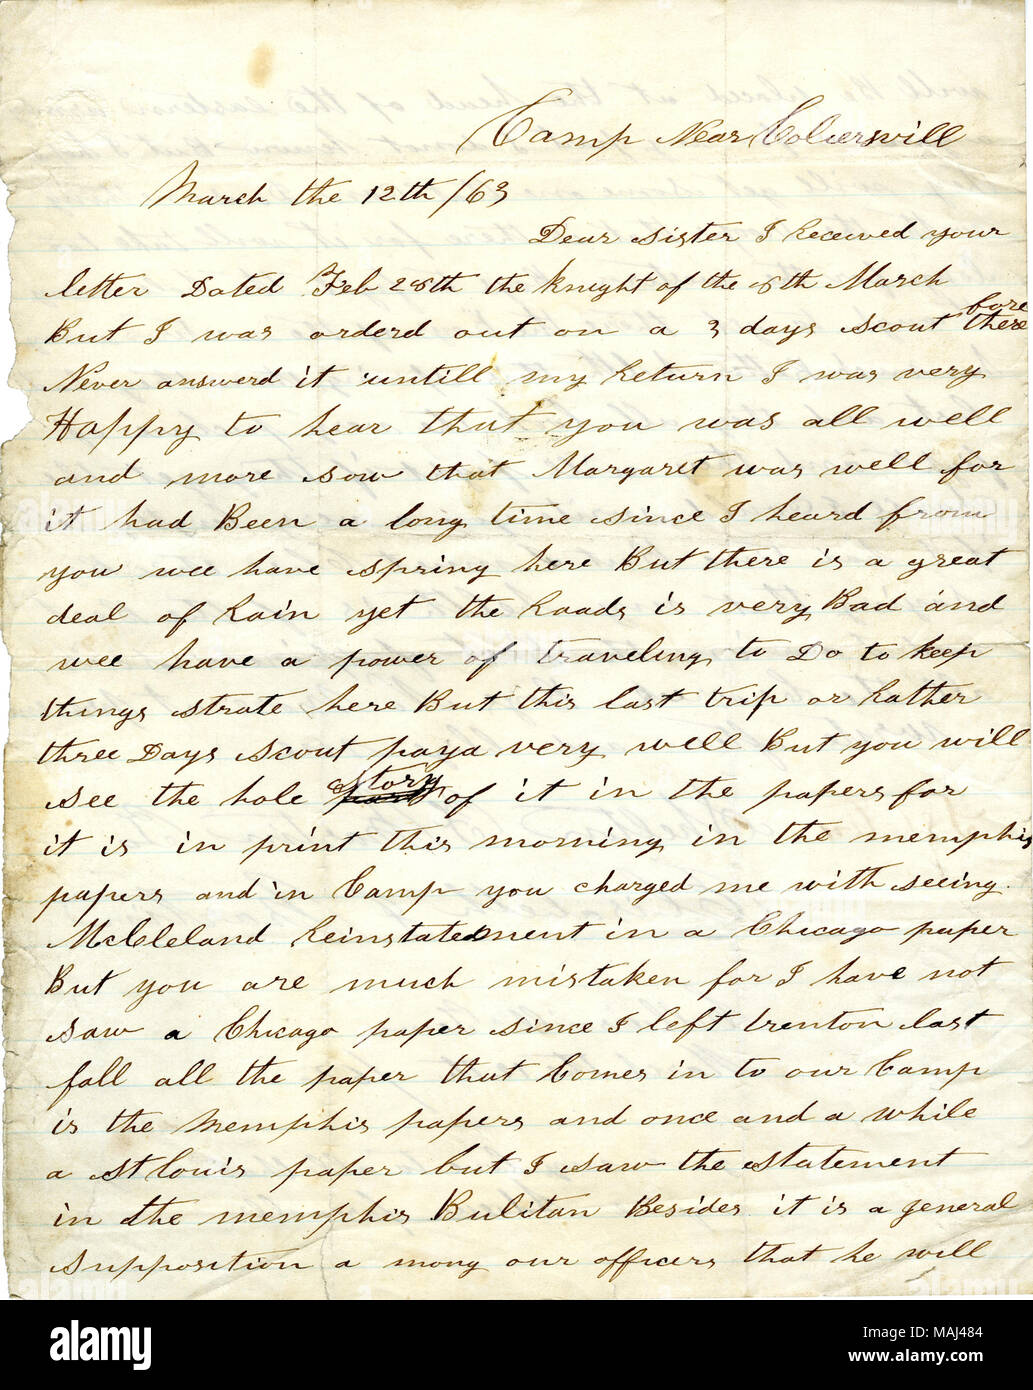 Camp Near Colierswill
March the 12th /63
Dear Sister I Received your
letter Dated Feb 28th the knight of the 8th March
But I was orderd out on a 3 days scout there fore
Never answerd it untill my Return I was very
Happy to hear that you was all well
and more sow that Margaret was well for
it had Been a long time since I heard from
you wee have spring here But there is a great
deal of Rain yet the Roads is very Bad and
wee have a power of traveling to Do to keep
things strate here But this last trip or Rather
three Days scout paya very well But you will
see the hole part story of it in the papers for
it is in print this morning in the memphis
papers and in Camp you charged me with seeing
McCleland Reinstatement in a Chicago paper
But you are much mistaken for I have not
saw a Chicago paper since I left trenton last
fall all the paper that Comes in to our Camp
is the Memphis papers and once and a while
a st Louis paper but I saw the statement
in the memphis Bulitan Besides it is a general
supposition a mong our officers that he will
alamy
Image ID: MAJ484
www.alamy.com